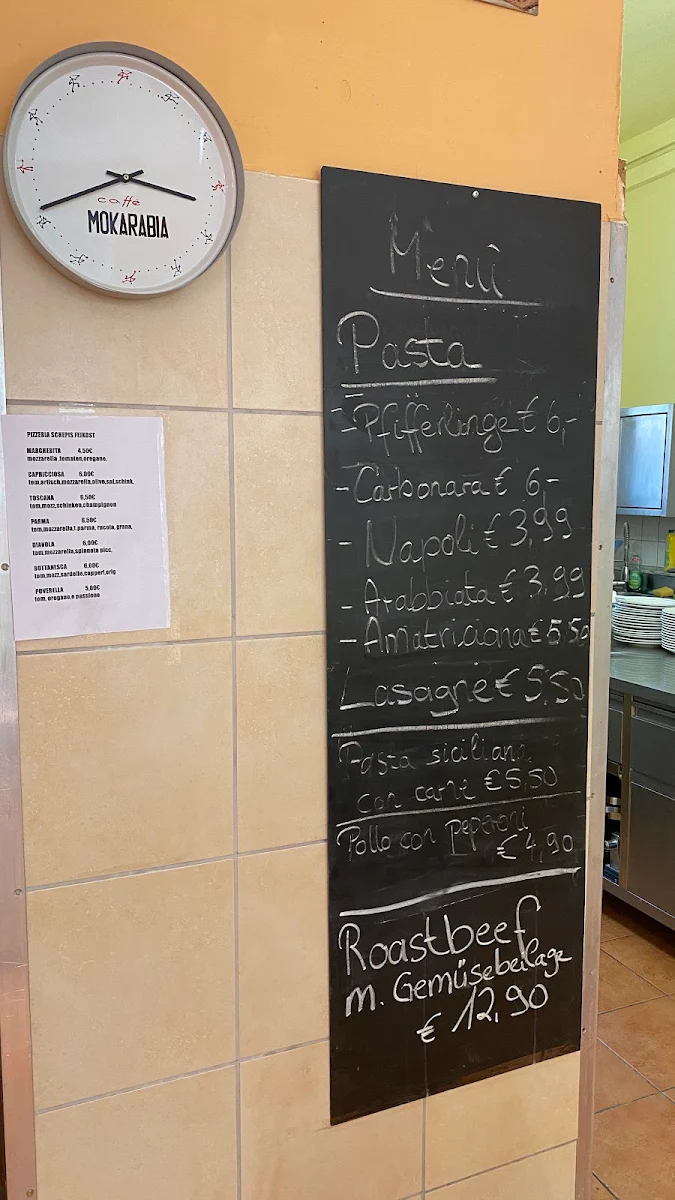 caffè
MOKARABIA
PIZZERIA SCHEPIS FEINKOST
MARGHERITA 4,50€
mozzarella ,tomaten,oregano,
CAPRICCIOSA 6,00€
tom,artisch,mozzarella,olive,sal,schink,
TOSCANA 6,50€
tom,mozz,schinken,champignon
PARMA 6,50€
tom,mozzarella,t.parma, rucola, grana,
DIAVOLA 6,00€
tom,mozzarella,spianata picc,
BUTTANISCA 6,00€
tom,mozz,sardelle,capperi,orig
POVERELLA 5,00€
tom, oregano,e passione
Menü
Pasta
- Pfifferlinge € 6,-
- Carbonara € 6,-
- Napoli € 3,99
- Arabbiata € 3,99
- Amatriciana € 5,50
Lasagne € 5,50
Pasta siciliana
con carne € 5,50
Pollo con peperoni
€ 4,90
Roastbeef
m. Gemüsebeilage
€ 12,90